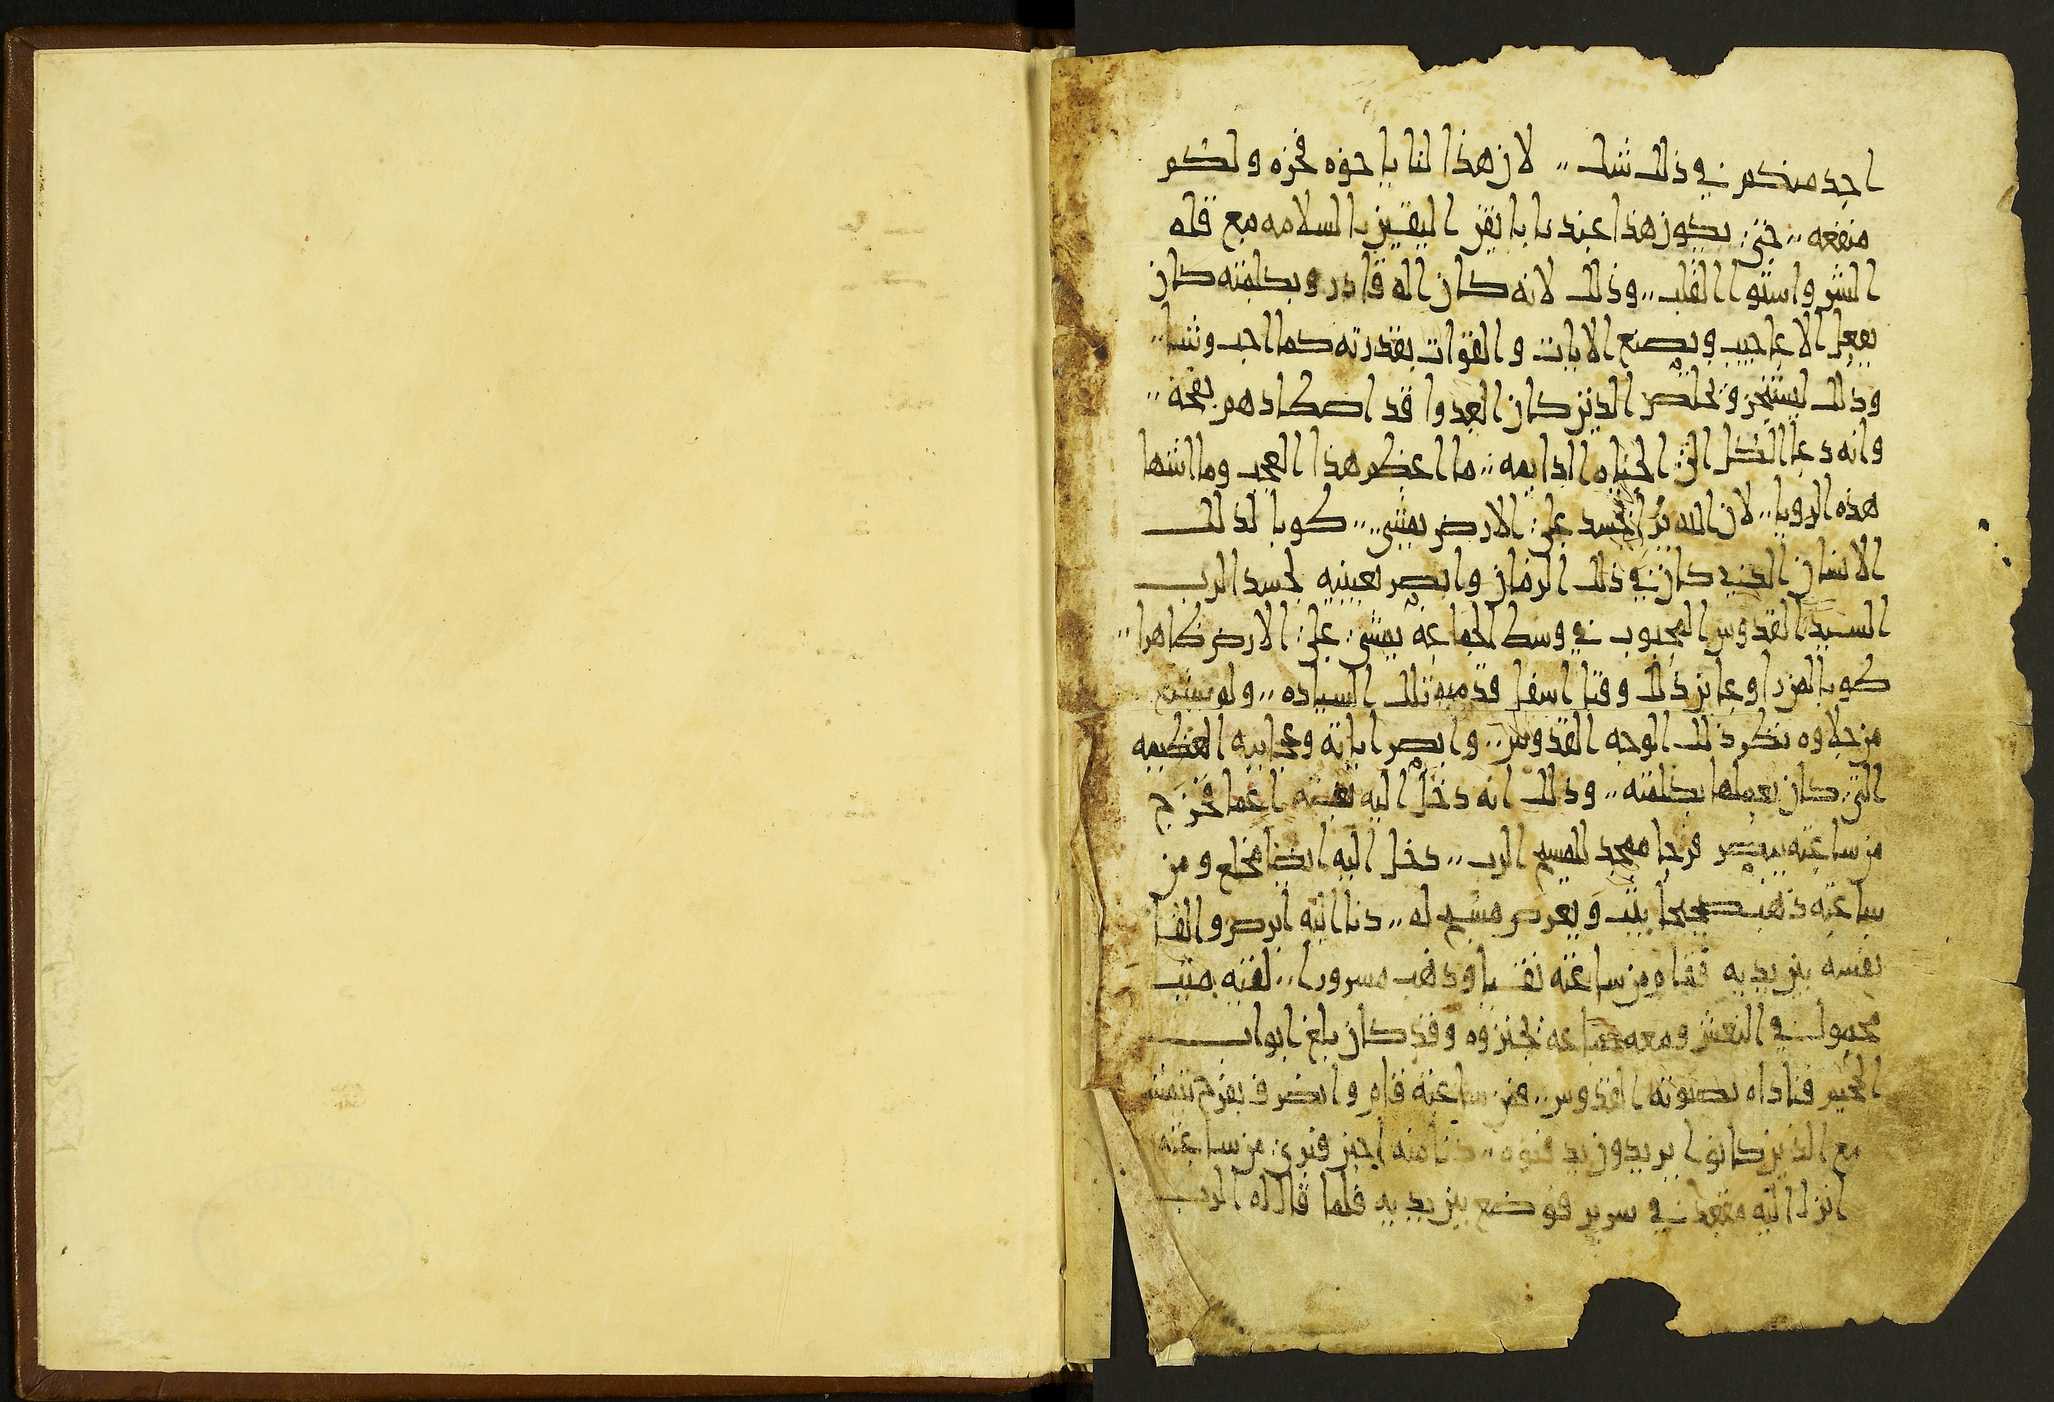 احد منكم في ذلك شك .. لان هذا لنا يا اخوه فخره ولكم
منفعه .. حتى يكون هذا عندنا بايقن اليقين بالسلامه مع قله
الشر واستوا القلب .. وذلك لانه كان اله قادر وبكلمته كان
يفعل الاعاجيب ويصنع الايات والقوات بقدرته كما احب وشا ..
وذلك ليستنجز ويخلص الذين كان العدوا قد اصطادهم بفخه ..
وانه دعا الكل الى الحياه الدايمه .. ما اعظم هذا العجب وما اشها
هذه الرويا .. لان الله يرا بجسد على الارض يمشي .. طوبا لذلك
الانسان الذي كان في ذلك الزمان وابصر بعينيه لجسد الرب
السيد القدوس المحبوب في وسط الجماعه يمشي على الارض ظاهرا ..
طوبا لمن را وعاين ذلك وقتا اسفل قدميه تلك السياده .. ولم يشبع
من حلاوه نظر ذلك الوجه القدوس .. وابصر اياته وعجايبه العظيمه
التي كان يعملها بكلمته .. وذلك انه دخل اليه اعما فخرج
من ساعته يبصر فرحا ممجد للمسيح الرب .. دخل اليه ايضا مخلع ومن
ساعته ذهب صحيحا يثب ويعرض مسبح له .. دنا اليه ابرص والقا
نفسه بين يديه فقام من ساعته نقيا وذهب مسرورا .. لقيه ميت
محمول في النعش ومعه جماعه تحنزوه وقد كان بلغ ابواب
الحيم فناداه بصوته القدوس .. فمن ساعته قام وانصرف بفرح يتمشا
مع الذين كانوا يريدون يدفنوه .. دنا منه اجبن فبرى من ساعته
انزل اليه مقعد في سرير فوضع بين يديه فلما قال له الرب